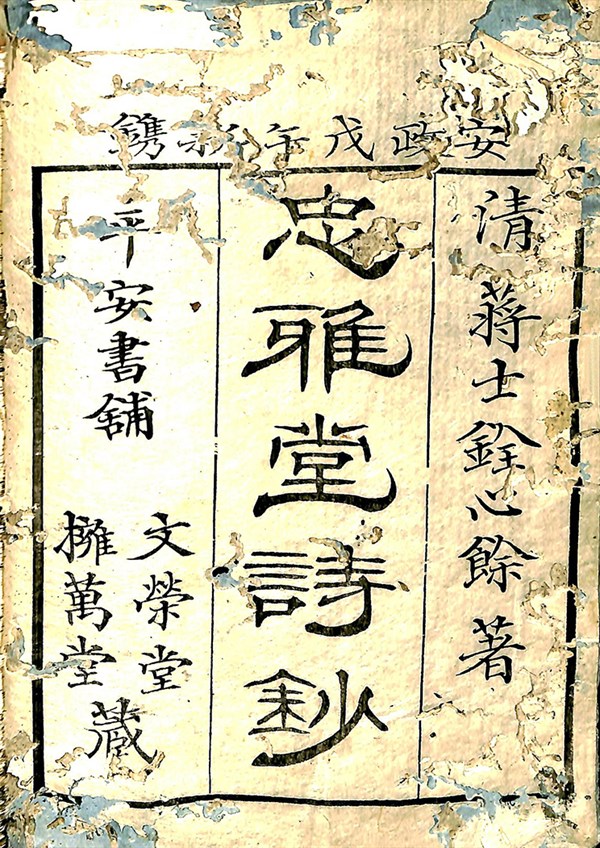 安政戊午新鐫
清 蔣士銓心餘著
忠雅堂詩鈔
平安書舖
文榮堂
擁萬堂
藏